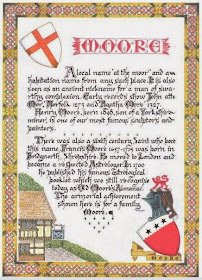 MOORE
A local name 'at the moor' and an
habitation name from any such place. It is also
seen as an ancient nickname for a man of swar-
thy complexion. Early records show John atte
Mor, Norfolk 1273 and Agatha More 1327.
Henry Moore, born 1898, son of a Yorkshire
miner, is one of our most famous sculptors and
painters.
There was also a 16th century Saint who bore
this name. Francis Moore 1657-1715 was born in
Bridgnorth, Shropshire. He moved to London and
became a respected Astrologer. In 1700
he published his famous Astrological
booklet which we still recognise
today as Old Moore's Almanac.
The armorial achievement
shown here is for a family
Moore.
Moore